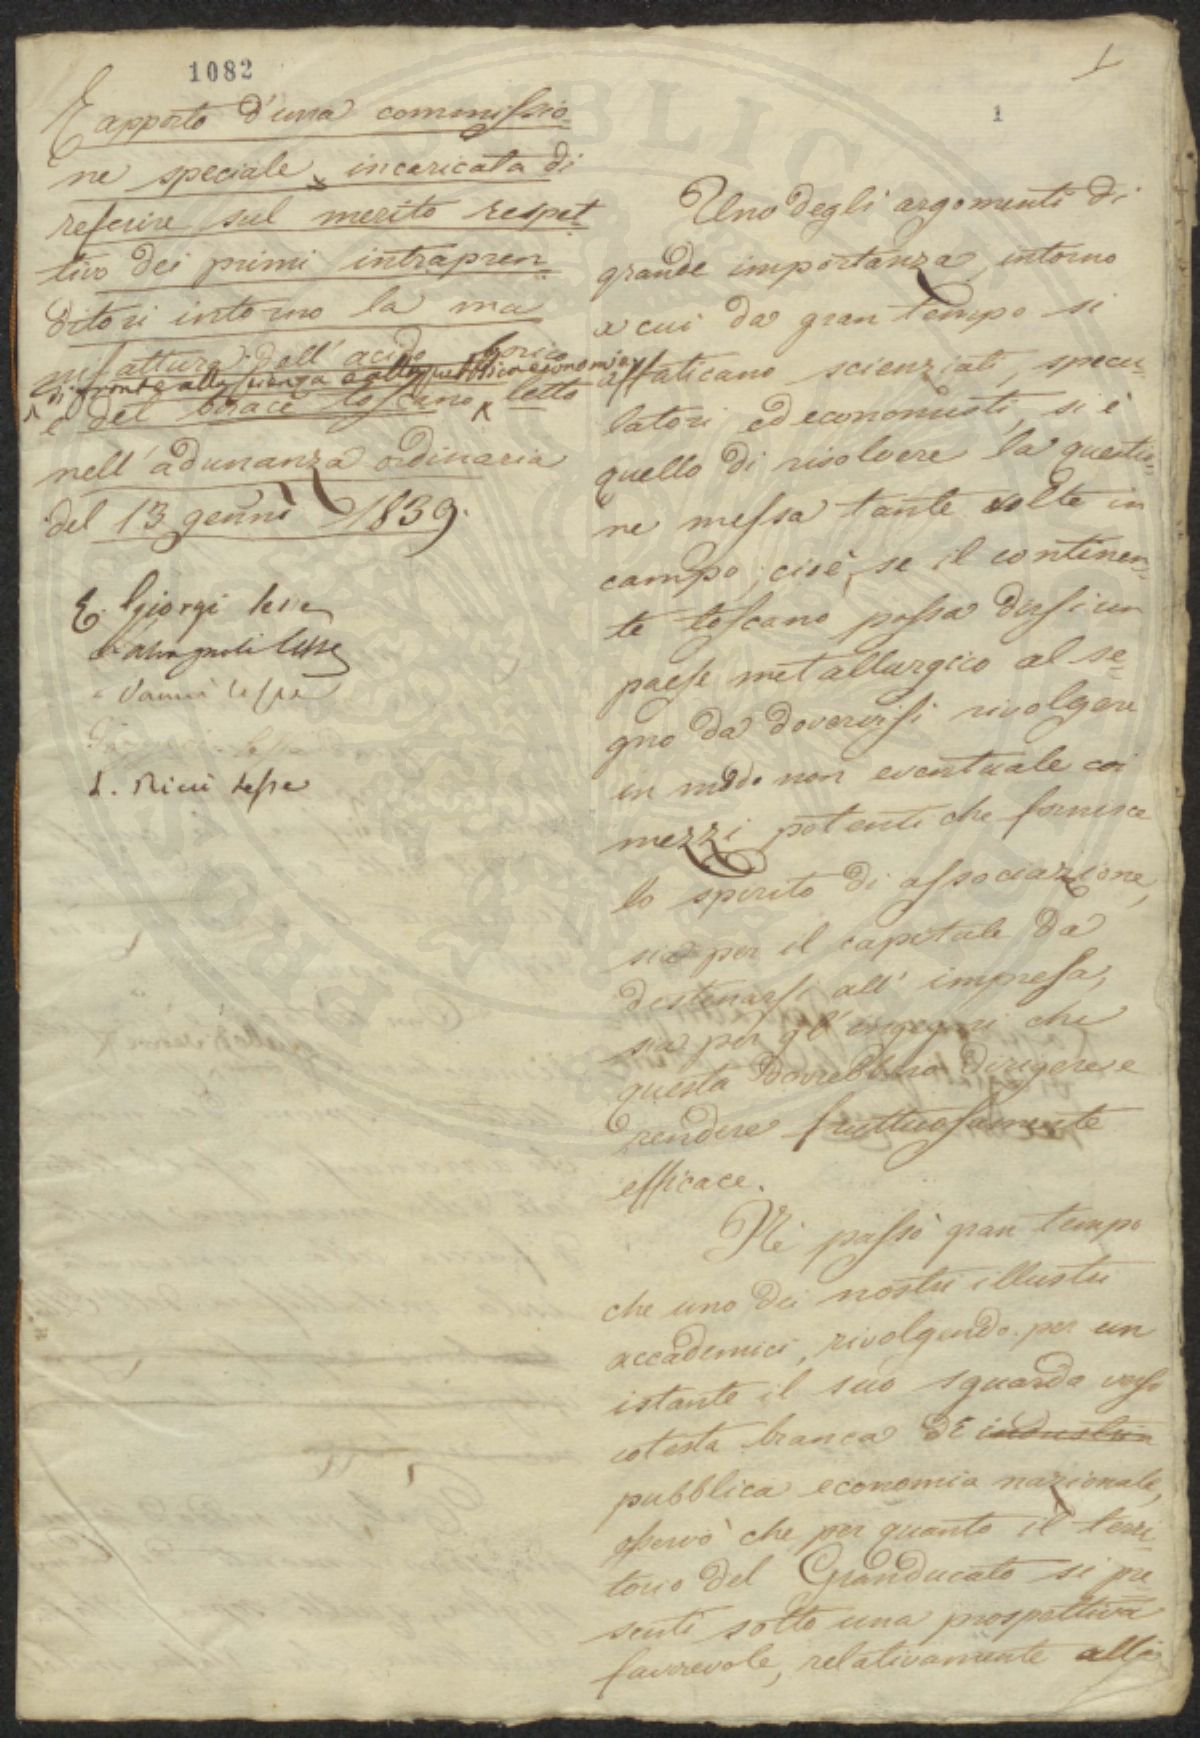 1082
1
1
Rapporto d'una commissio=
ne speciale incaricata di
referire sul merito respet=
tivo dei primi intrapren=
ditori intorno la ma
nifattura dell'acido borico
di fronte alla scienza e alla pubblica economia
e del borace toscano letto
nell'adunanza ordinaria
del 13 genn: 1839.
E. Giorgi lesse
lesse
Vannu lesse
lesse
L. Ricci lesse
Uno degli argomenti di
grande importanza, intorno
a cui da gran tempo si
affaticano scienziati, specu=
latori ed economisti, si è
quello di risolvere la questio=
ne messa tante volte in
campo; cioè, se il continen=
te toscano possa dirsi un
paese metallurgico al se=
gno da doversi rivolgere
in modo non eventuale coi
mezzi potenti che fornisce
lo spirito di associazione,
sia per il capitale da
destinarsi all'impresa,
sia per gl'ingegni che
questa dovrebbero dirigere e
rendere fruttuosamente
efficace.
Nè passò gran tempo
che uno dei nostri illustri
accademici, rivolgendo per un
istante il suo sguardo verso
cotesta branca di industria
pubblica economia nazionale,
osservò che per quanto il terri=
torio del Granducato si pre=
senti sotto una prospettiva
favorevole, relativamente alla